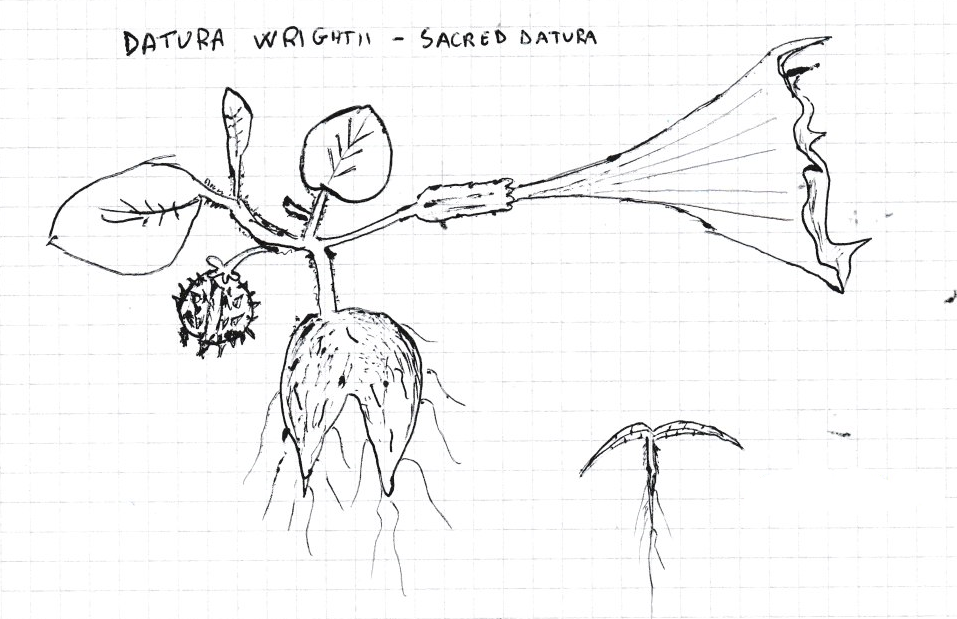 DATURA WRIGHTII - SACRED DATURA